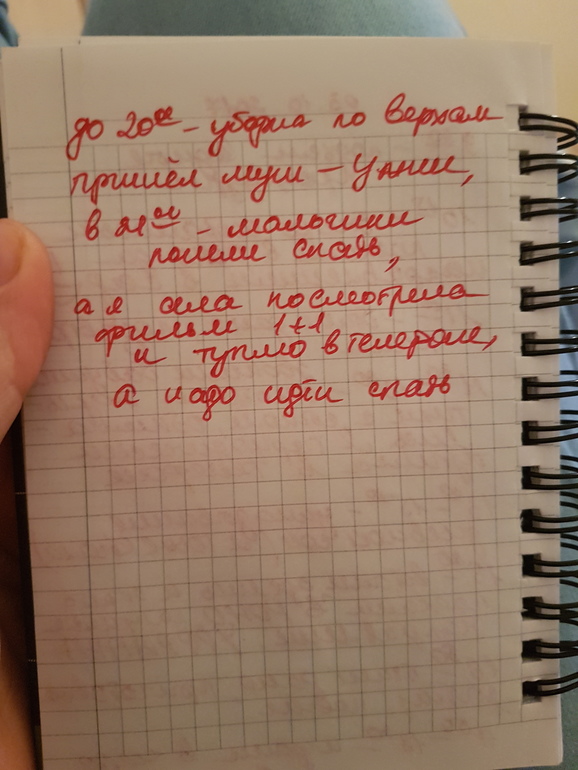 до 20⁰⁰ - уборка по верхам
пришёл муж - ужин,
в 21⁰⁰ - мальчики
пошли спать,
а я села посмотрела
фильм 1+1
и туплю в телефоне,
а надо идти спать